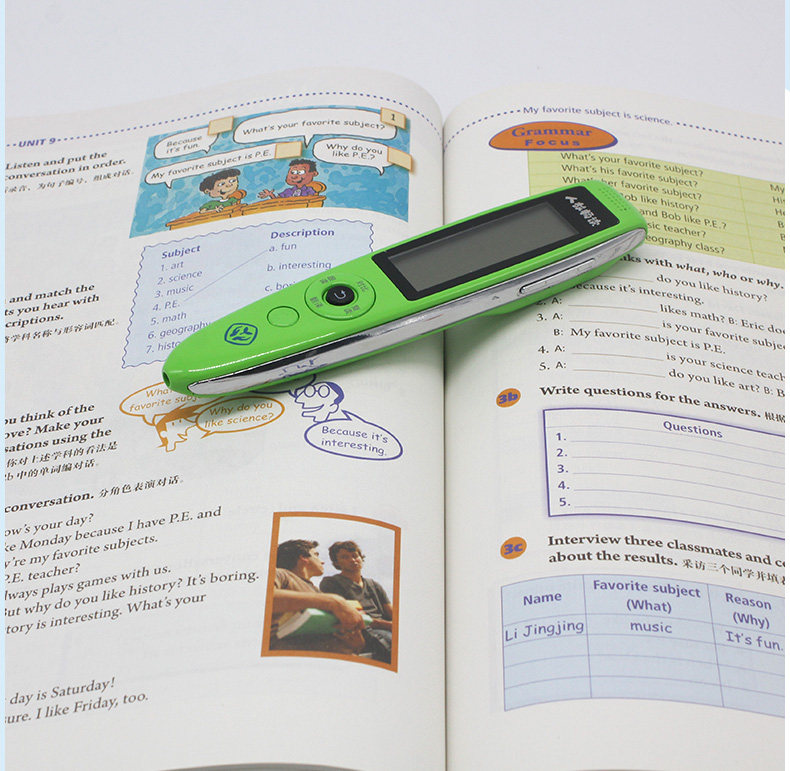 UNIT 9
Listen and put the
conversation in order.
录音，为句子编号，组成对话。
Because
it's fun.
What's your favorite subject?
1
My favorite subject is P.E.
Why do you
like P.E.?
and match the
ts you hear with
criptions.
将学科名称与形容词匹配。
Subject
1. art
2. science
3. music
4. P.E.
5. math
6. geography
7. histo
Description
a. fun
b. interesting
c. bori
ou think of the
ove? Make your
sations using the
你对上述学科的看法是
2b 中的单词编对话。
favorite subj
Why do you
like science?
Because it's
interesting.
conversation. 分角色表演对话。
ow's your day?
ke Monday because I have P.E. and
y're my favorite subjects.
P.E. teacher?
lways plays games with us.
But why do you like history? It's boring.
tory is interesting. What's your
day is Saturday!
sure. I like Friday, too.
人教畅读
My favorite subject is science.
Grammar
Focus
What's your favorite subject?
What's his favorite subject?
What's her favorite subject?
Bob like history?
and Bob like P.E.?
sic teacher?
eography class?
My
His
He
B
nks with what, who or why.
do you like history?
ecause it's interesting.
2. A:
likes math? B: Eric doe
3. A:
is your favorite subjec
B: My favorite subject is P.E.
4. A:
is your science teach
5. A:
do you like art? B: B
3b
Write questions for the answers. 根据
Questions
1.
2.
3.
4.
5.
3c
Interview three classmates and co
about the results. 采访三个同学并填表
Name
Favorite subject
(What)
Reason
(Why)
Li Jingjing
music
It's fun.